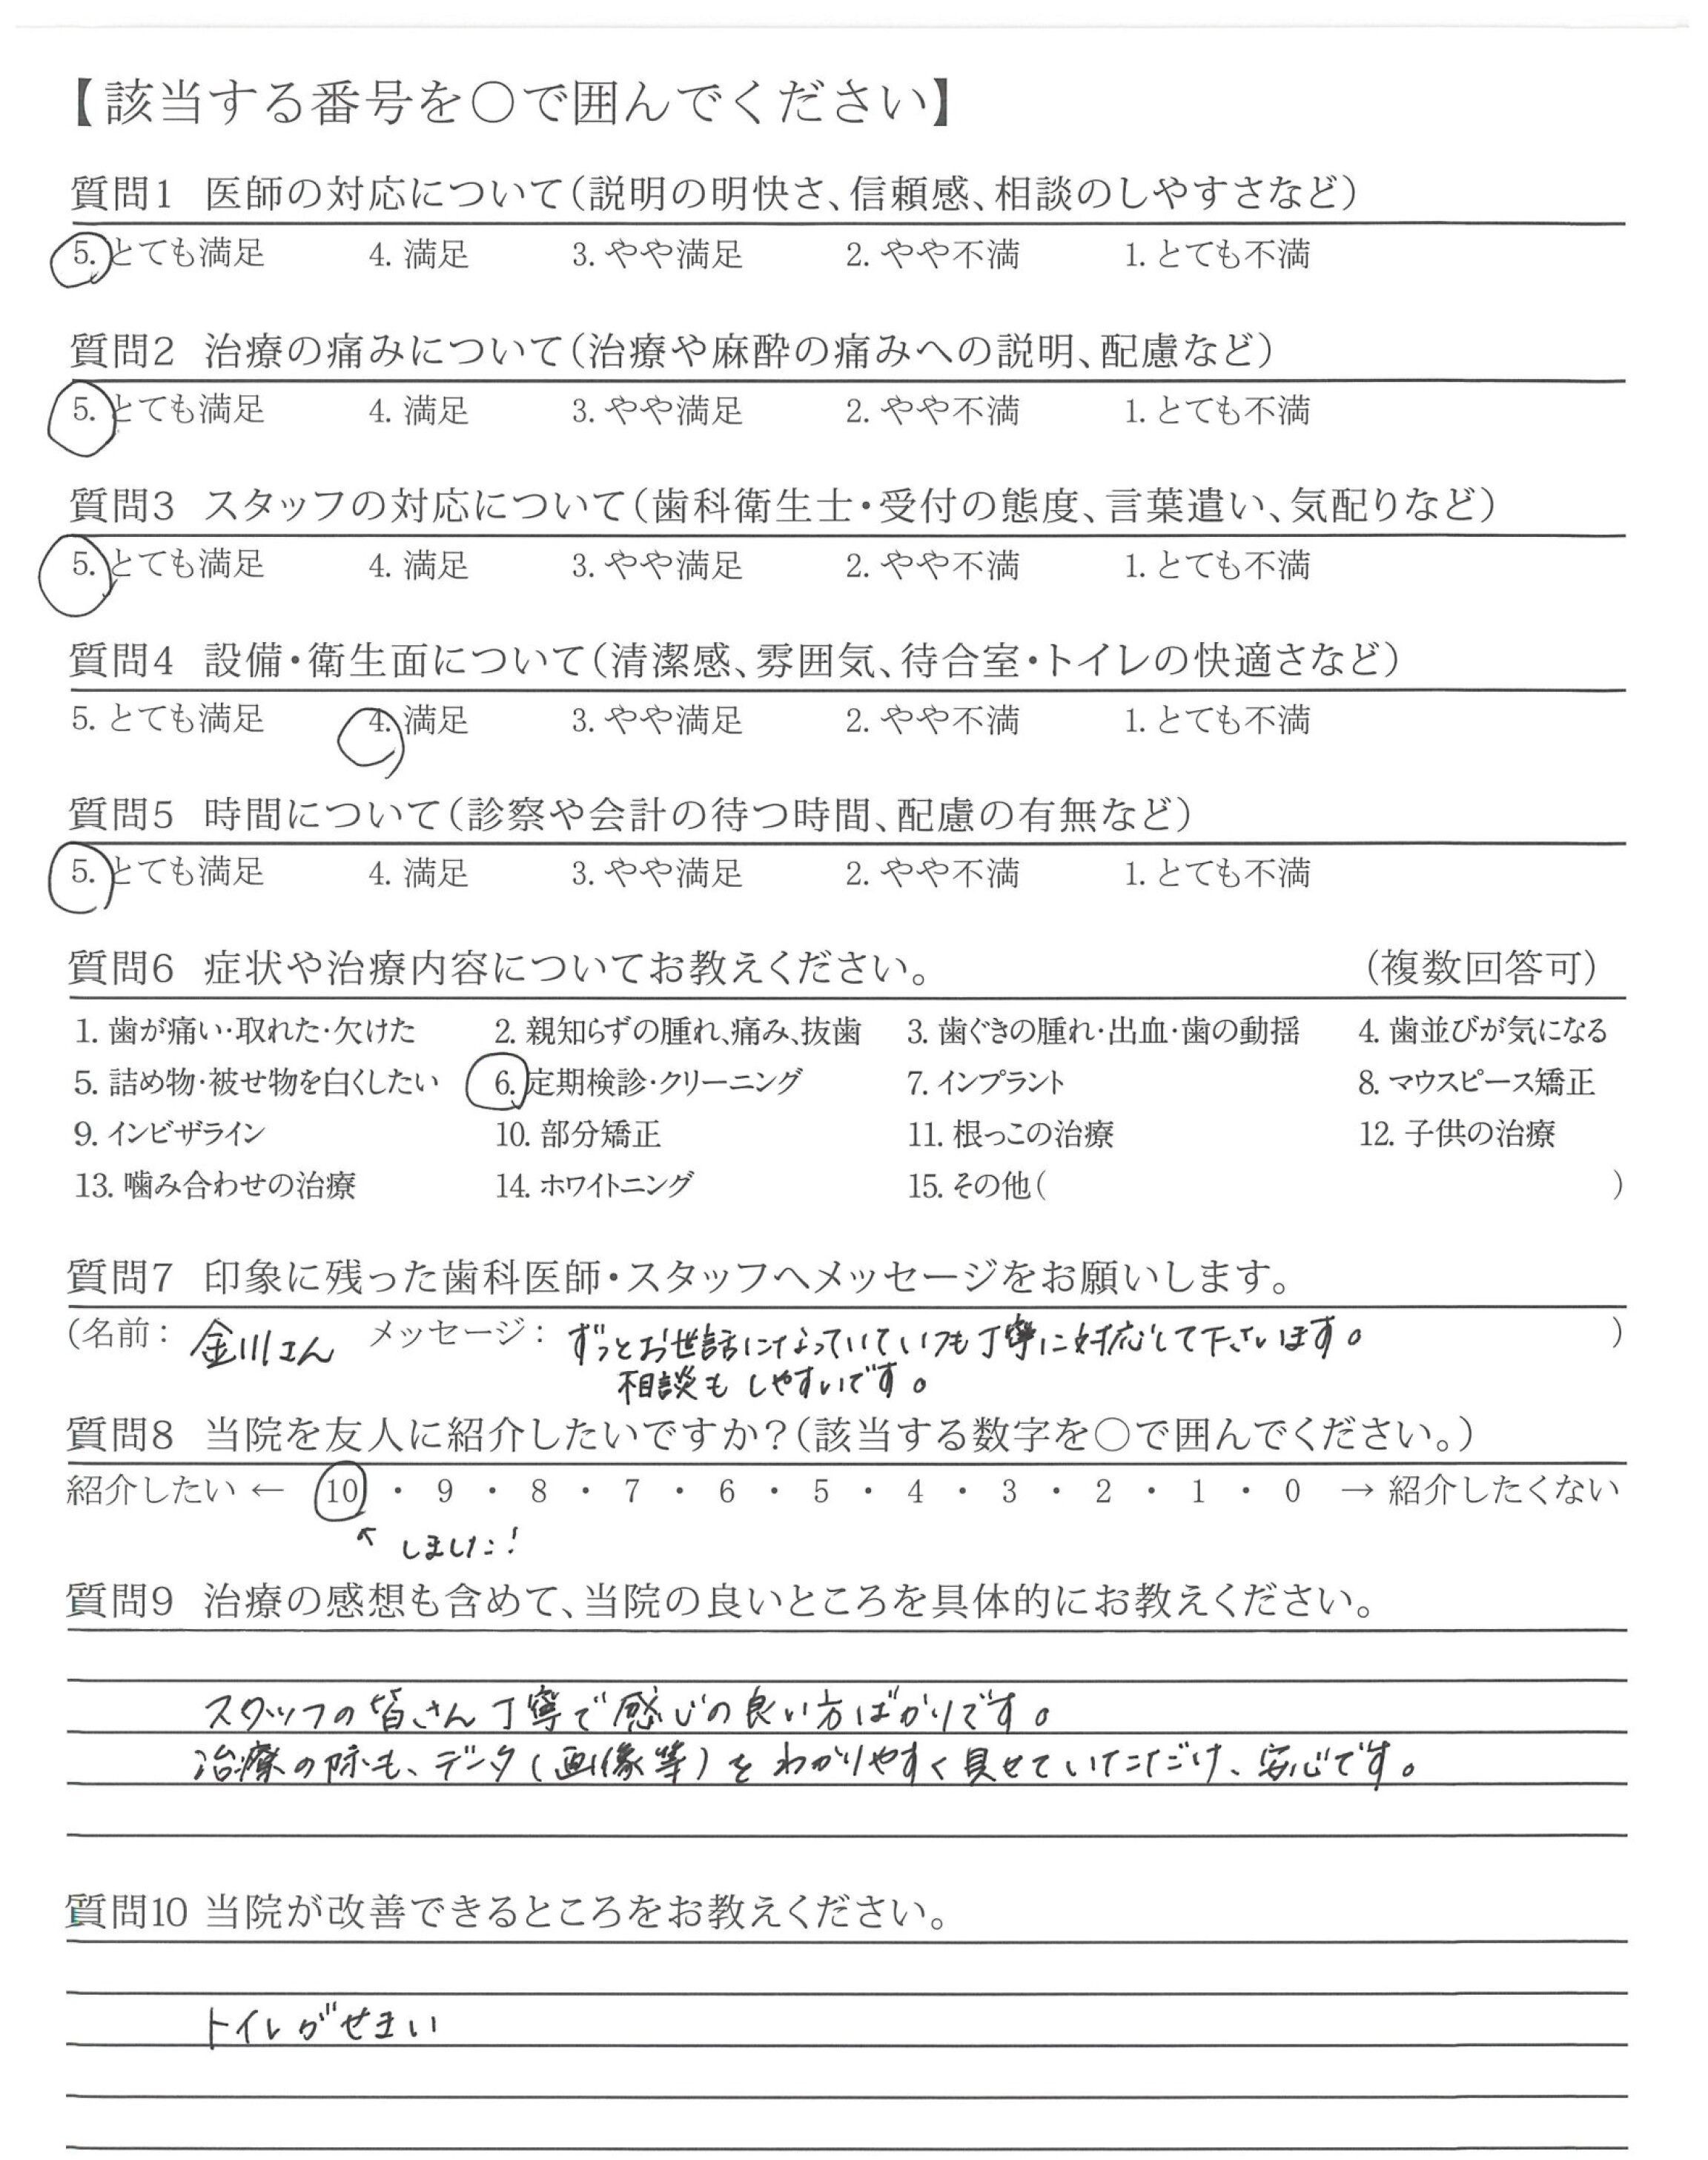 【該当する番号を〇で囲んでください】
質問1 医師の対応について(説明の明快さ、信頼感、相談のしやすさなど)
5. とても満足 4. 満足 3. やや満足 2. やや不満 1. とても不満
質問2 治療の痛みについて(治療や麻酔の痛みへの説明、配慮など)
5. とても満足 4. 満足 3. やや満足 2. やや不満 1. とても不満
質問3 スタッフの対応について(歯科衛生士・受付の態度、言葉遣い、気配りなど)
5. とても満足 4. 満足 3. やや満足 2. やや不満 1. とても不満
質問4 設備・衛生面について(清潔感、雰囲気、待合室・トイレの快適さなど)
5. とても満足 4. 満足 3. やや満足 2. やや不満 1. とても不満
質問5 時間について(診察や会計の待つ時間、配慮の有無など)
5. とても満足 4. 満足 3. やや満足 2. やや不満 1. とても不満
質問6 症状や治療内容についてお教えください。 (複数回答可)
1. 歯が痛い・取れた・欠けた 2. 親知らずの腫れ、痛み、抜歯 3. 歯ぐきの腫れ・出血・歯の動揺 4. 歯並びが気になる
5. 詰め物・被せ物を白くしたい 6. 定期検診・クリーニング 7. インプラント 8. マウスピース矯正
9. インビザライン 10. 部分矯正 11. 根っこの治療 12. 子供の治療
13. 噛み合わせの治療 14. ホワイトニング 15. その他( )
質問7 印象に残った歯科医師・スタッフへメッセージをお願いします。
(名前: 金川さん メッセージ: ずっとお世話になっていていつも丁寧に対応して下さいます。 )
相談もしやすいです。
質問8 当院を友人に紹介したいですか?(該当する数字を〇で囲んでください。)
紹介したい ← 10 ・ 9 ・ 8 ・ 7 ・ 6 ・ 5 ・ 4 ・ 3 ・ 2 ・ 1 ・ 0 → 紹介したくない
↖ しました!
質問9 治療の感想も含めて、当院の良いところを具体的にお教えください。
スタッフの皆さん丁寧で感じの良い方ばかりです。
治療の際も、データ(画像等)をわかりやすく見せていただけ、安心です。
質問10 当院が改善できるところをお教えください。
トイレがせまい